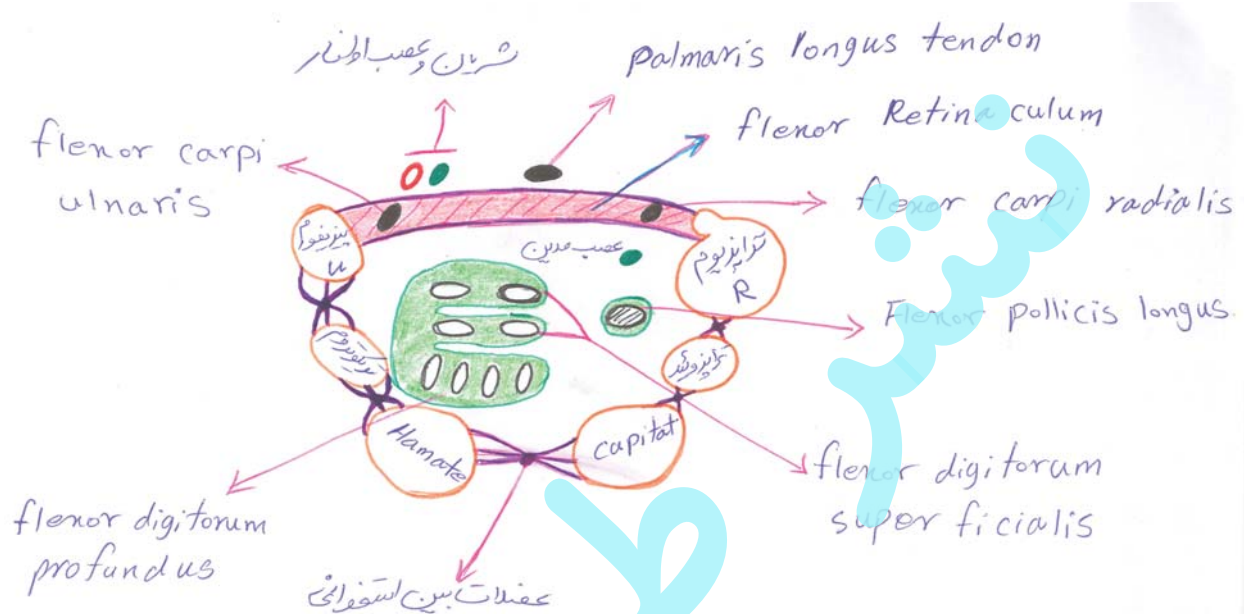 شریان و عصب اولنار
palmaris longus tendon
flexor Retina culum
flexor carpi
ulnaris
flexor carpi radialis
پیزیفورم
U
عصب مدین
تراپزیوم
R
Flexor pollicis longus
تریکوتروم
تراپزوئید
Hamate
capitat
flexor digitorum
super ficialis
flexor digitorum
profundus
عضلات بین استخوانی
نشر